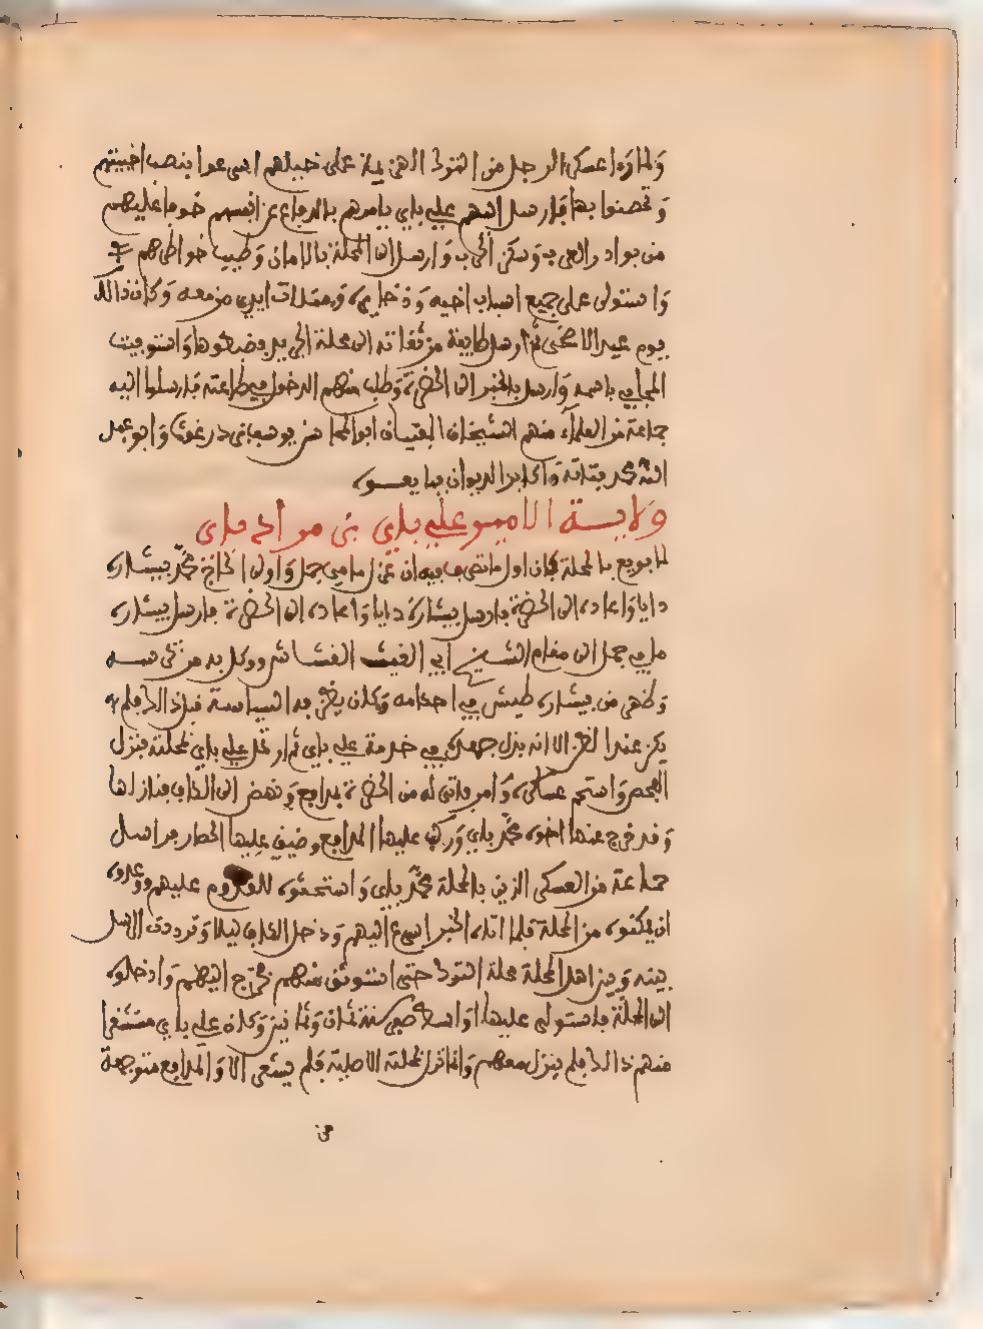 ولما راوا عسكر الرجل من الترك الهزيمة على خيلهم اسرعوا بنصب اخبيتهم
وتحصنوا بها فارسل اليهم علي باي يامرهم بالدفاع عن انفسهم خوفا عليهم
من بوادر العرب وسكن الحرب وارسل الى المحلة بالامان وطيب خواطرهم
واستولى على جميع اسباب اخيه وذخايره وامتلات ايدي من معه وكان ذالك
يوم عيد الاضحى ثم ارسل طايفة من ثقاته الى محلة الجريد وضبطوها واستوفيت
المجابي باسمه وارسل بالخبر الى الحضرة وطلب منهم الدخول في طاعته فارسلوا اليه
جماعة من العلماء منهم الشيخان الفقيهان ابو المحاسن يوسف بن درغوث وابو عبد
الله محمد بتاتة واكابر الديوان فبايعوه
ولاية الامير علي باي بن مراد باي
لما بويع بالمحلة كان اول ما تصرف فيه ان عزل مامي جمل واولى الحاج محمد بيشارة
دايا واعاده الى الحضرة فارسل بيشارة
مامي جمل الى مقام الشيخ ابي الغيث القشاش ووكل به من يحرسه
وظهر من بيشارة طيش في احكامه وكان يظن به السياسة قبل ذالك فلم
يكن عند الظن الا انه بذل جهده في خدمة علي باي ثم ارتحل علي باي بمحلته فنزل
الفحص واستتم عساكره وامر فاتى له من الحضرة بمدافع ونهض الى الكاف فنازلها
وقد خرج عنها اخوه محمد باي وركب عليها المدافع وضيق عليها الحصار فراسل
جماعة من العسكر الذين بالمحلة محمد باي واستحثوه للقدوم عليهم ووعدوه
ان يمكنوه من المحلة فلما اتاه الخبر اسرع اليهم ودخل الكاف ليلا وترددت الرسل
بينه وبين اهل المحلة محلة الترك حتى استوثق منهم فخرج اليهم وادخلوه
الى المحلة فاستولى عليها اواسط صفر سنة ثمان وثمانين وكان علي باي مستشعرا
منهم ذالك فلم ينزل معهم وانما نزل بمحلته الاصلية فلم يشعر الا والمدافع متوجهة
من